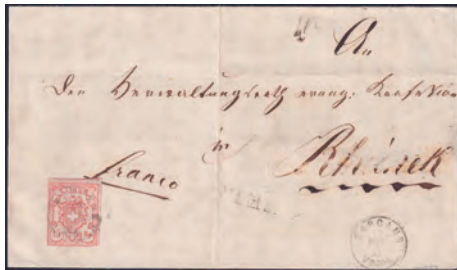 An
Den Verwaltungsrath evang: Konfession
in
Rheineck
Franco
SARGANS